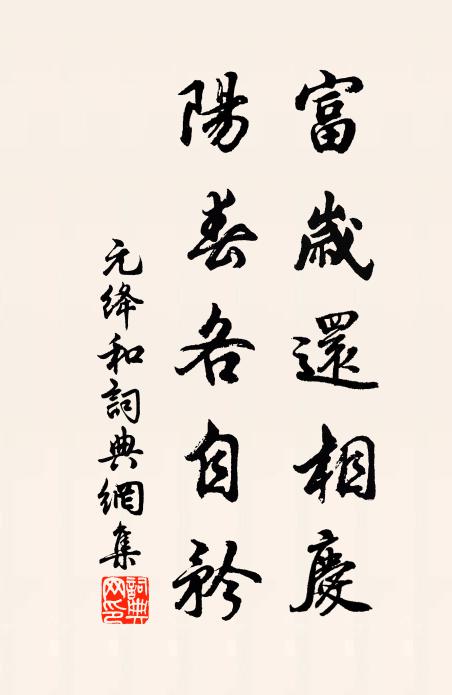 富歲還相慶
陽春各自矜
元絳和詞典網集
詞典網印